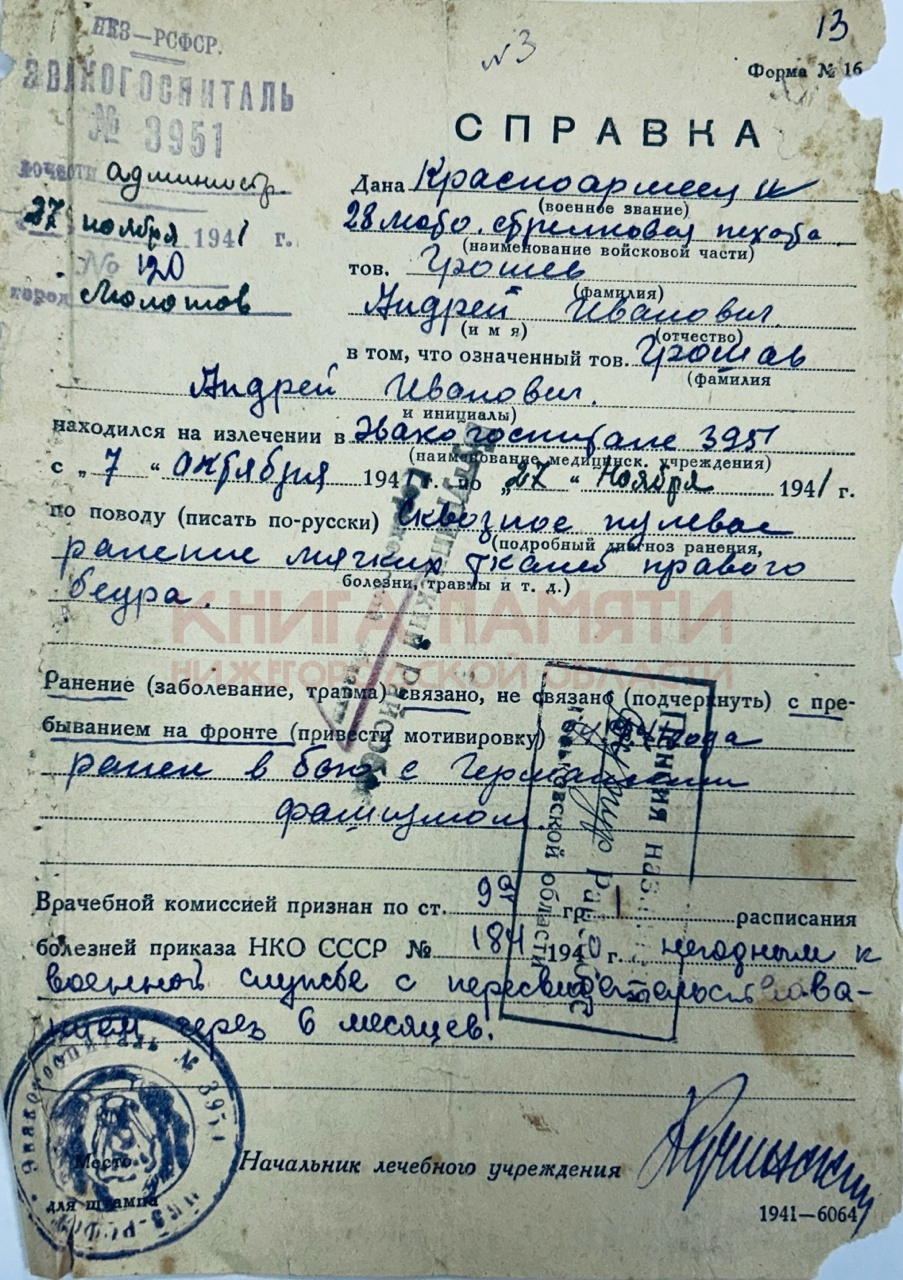 13
N 3
НКЗ—РСФСР.
Форма № 16
ЭВАКОГОСПИТАЛЬ
№ 3951
СПРАВКА
администр.
Дана Красноармеец
(военное звание)
27 ноября 1941 г.
28 мото. стрелковая пехота
(наименование войсковой части)
№ 120
тов. Грошев
(фамилия)
город Молотов
Андрей Иванович.
(имя) (отчество)
в том, что означенный тов. Грошев
(фамилия
Андрей Иванович.
и инициалы)
находился на излечении в Эвакогоспитале 3951
(наименование медицинск. учреждения)
с „7“ октября 1941 г. по „27“ Ноября 1941 г.
по поводу (писать по-русски) Сквозное пулевое
(подробный диагноз ранения,
ранение мягких тканей правого
болезни, травмы и т. д.)
бедра.
КНИГА ПАМЯТИ
НИЖЕГОРОДСКОЙ ОБЛАСТИ
Ранение (заболевание, травма) связано, не связано (подчеркнуть) с пре-
быванием на фронте (привести мотивировку) года
ранен в бою с Германским
фашизмом.
Пенсия
области
Врачебной комиссией признан по ст. 99 гр. I расписания
болезней приказа НКО СССР № 184 1940 г. негодным к
военной службе с
через 6 месяцев.
Эвакогоспиталь № 3951
НКЗ-РСФСР
Место
для штампа
Начальник лечебного учреждения
1941—6064